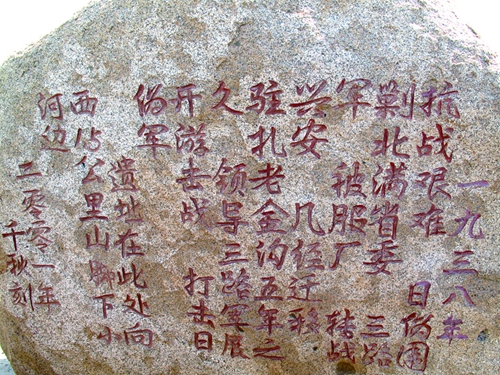 一九三八年
抗战艰难 日伪围
剿北满省委 三路
军 被服厂 转战
兴安 几经迁移
驻扎老金沟五年之
久 领导三路军展
开游击战 打击日
伪军
遗址在此处向
西公里山脚下小
河边
二零零一年
千秋刻